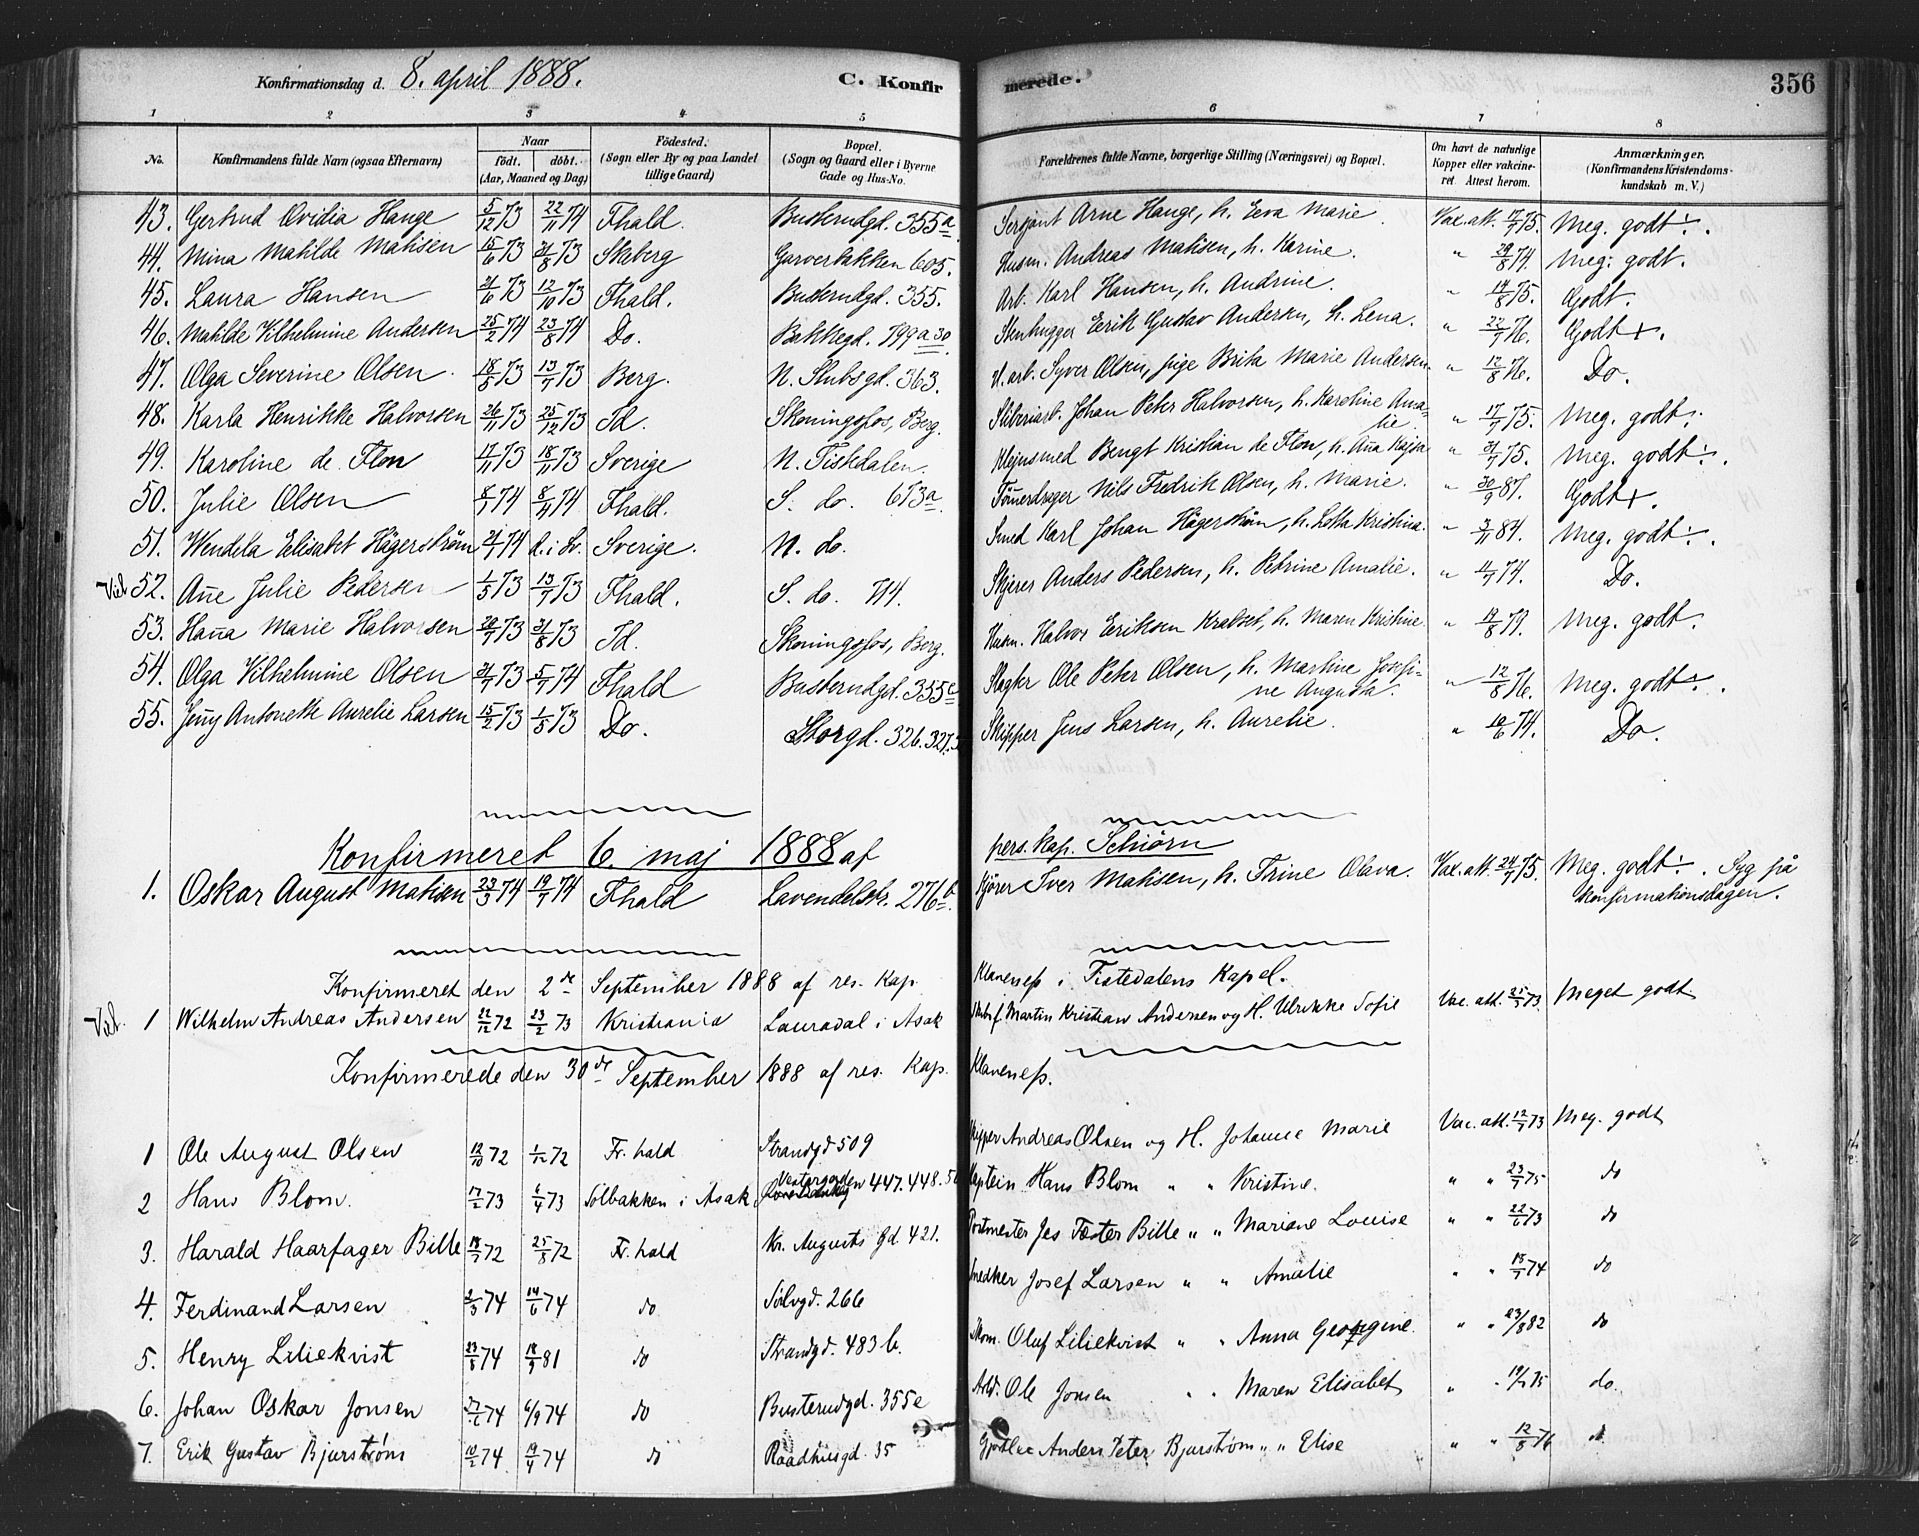 Konfirmationsdag d. 8. april 1888. C. Konfirmerede. 356
1 2 3 4 5 6 7 8
No. Konfirmandens fulde Navn (ogsaa Efternavn) Naar født. døbt. (Aar, Maaned og Dag) Fødested. (Sogn eller By og paa Landet tillige Gaard) Bopœl. (Sogn og Gaard eller i Byerne Gade og Hus-No. Forœldrenes fulde Navne, borgerlige Stilling (Næringsvei) og Bopœl. Om havt de naturlige Kopper eller vakcineret. Attest herom. Anmœrkninger. (Konfirmandens Kristendomskundskab m. V.)
43. Gertrud Ovidia Hange 5/12 73 22/11 74 Fhald. Busterudgd. 355a Sersjant Arne Hange, h. Eva Marie. Vax. att. 17/7 75. Meg. godt÷.
44. Mina Mathilde Mathisen 15/6 73 31/8 73 Skeberg Garverbakken 605. Husm. Andreas Mathisen, h. Karine. " 29/8 74. Meg. godt.
45. Laura Hansen 21/6 73 12/10 73 Fhald. Busterudgd. 355. Arb. Karl Hansen, h. Andrine. " 14/8 75. Godt.
46. Mathilde Vilhelmine Andersen 25/2 74 23/8 74 Do. Bakkegd. 799a 30 Stenhugger Erik Gustav Andersen, h. Lena. " 22/7 76. Godt+.
47. Olga Severine Olsen. 18/5 73 13/7 73 Berg. N. Stubsgd. 363. arb. Syver Olsen, pige Brita Marie Andersen. " 12/8 76. Do.
48. Karla Henrikke Halvorsen 26/11 73 25/12 73 Id. Skoningsfos, Berg. Sliberiarb. Johan Peter Halvorsen, h. Karoline Amalie. " 17/7 75. Meg. godt÷
49. Karoline de Flon 17/11 73 18/11 73 Sverige N. Tistedalen. Klejnsmed Bengt Kristian de Flon, h. Aña Kajsa " 31/7 75. Meg. godt÷.
50. Julie Olsen 8/1 74 8/4 74 Fhald. S. do. 673a Tømerdrager Nils Fredrik Olsen, h. Marie. " 30/9 87. Godt+.
51. Wendela Elisabet Hägerström 21/1 74 d. i Sv. Sverige. N. do. Smed Karl Johan Hägerström, h. Lotta Kristina. " 3/11 84. Meg. godt÷.
Vid. 52. Añe Julie Pedersen 1/5 73 13/7 73 Fhald. S. do. 714. Skjerer Anders Pedersen, h. Petrine Amalie. " 11/7 74. Do.
53. Haña Marie Halvorsen 20/7 73 31/8 73 Id. Skoningsfos, Berg. Husm. Halvor Eriksen Krabset, h. Maren Kristine. " 19/8 79. Meg. godt.
54. Olga Vilhelmine Olsen 21/7 73 5/7 74 Fhald Busterudgd. 355c Slagter Ole Peter Olsen, h. Martine Josefine Augusta. " 12/8 76. Meg. godt÷.
55. Jeñy Antonette Aurelie Larsen 15/2 73 1/5 73 Do. Storgd. 326. 327. Skipper Jens Larsen, h. Aurelie. " 10/6 74. Do.
Konfirmeret 6. maj 1888 af pers. kap. Schiørn
1. Oskar August Mathisen 23/3 74 19/7 74 Fhald Lavendelstr. 276b. Kjører Iver Mathisen, h. Trine Olava. Vax. att. 24/7 75. Meg. godt÷. Syg på
konfirmationsdagen.
Konfirmeret den 2de September 1888 af res. Kap. Klaveness i Tistedalens Kapel.
Vid. 1 Wilhelm Andreas Andersen 22/12 72 23/2 73 Kristiania Lauradal i Asak Martin Kristian Andersen og H. Ulrikke Sofie Vac. att. 25/3 73 Meget godt
Konfirmerede den 30de September 1888 af res. Kap. Klaveness.
1 Ole August Olsen 12/10 72 1/12 72 Fr. hald Strandgd 509 Skipper Andreas Olsen og H. Johanne Marie Vac. att. 12/7 73 Meg. godt
2 Hans Blom. 17/2 73 6/4 73 Solbakken i Asak Vestergaden 447. 448. Kaptein Hans Blom " " Kristine. " " 23/7 75 do
3. Harald Haarfager Bille 18/7 72 25/8 72 Fr. hald Kr. Augusts Gd. 421. Postmester Jes Fæster Bille " " Mariane Louise " " 22/6 73 do
4. Ferdinand Larsen 2/3 74 14/6 74 do Sølvgd. 266 Snedker Josef Larsen " " Amalie " " 15/7 74 do
5. Henry Liliekvist 23/5 74 18/9 81 do Strandgd. 483 b. Skom. Oluf Liliekvist " " Anna Georgine. " " 23/8 82 do
6. Johan Oskar Jonsen 27/6 74 6/9 74 do Busterudgd. 355e Arbd. Ole Jonsen " " Maren Elisabet " " 19/7 75 do.
7. Erik Gustav Bjurstrøm 10/2 74 19/4 74 do Raadhusgd. 35 Anders Peter Bjurstrøm " " Elise " " 12/8 76 do